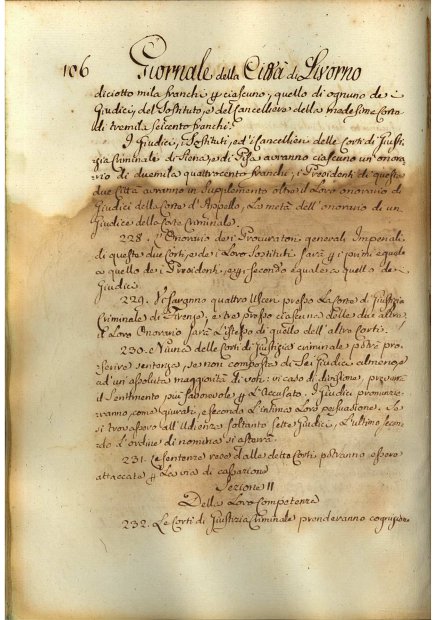 106 Giornale della Città di Livorno
diciotto mila franchi p ciascuno, quello di ognuno de
Giudici, del Sostituto, e del Cancelliere della medesima Corte
di tremila seicento franchi.
I Giudici, Sostituti, ed i Cancellieri delle Corti di Giusti
zia Criminali di Siena, e di Pisa avranno ciascuno un onora
rio di duemila quattrocento franchi, i Presidenti di queste
due Città avranno in Supplemento oltre il Loro onorario di
Giudici della Corte d'Appello, La metà dell'onorario di un
Giudice della Corte Criminale.
228. L'Onorario dei Procuratori generali Imperiali
di queste due Corti, e dei Loro Sostituti sarà p i primi eguale
a quello dei Presidenti, e p i secondi eguale a quello de
Giudici.
229. Vi saranno quattro Uscieri presso La Corte di Giustizia
Criminale di Firenze, e tre presso ciascuna delle due altre.
il Loro Onorario sarà L'istesso di quello dell'altre Corti.
230. Niuna delle Corti di Giustizia criminale potrà pro
ferire sentenza, se non composta di Sei Giudici almeno, e
ad un'assoluta maggiorità di voti: in caso di divisione, prevarrà
il Sentimento più favorevole p L'Accusato. I Giudici pronunzie
ranno, come Giurati, e secondo L'intima Loro persuasione. Se
si trovassero all'Udienza soltanto sette Giudici, L'ultimo secon
do L'ordine di nomina si asterrà.
231. Le sentenze rese dalle dette Corti potranno essere
attaccate p La via di cassazione
Sezione II
Della Loro Competenza
232. Le Corti di Giustizia Criminale prenderanno cognizione